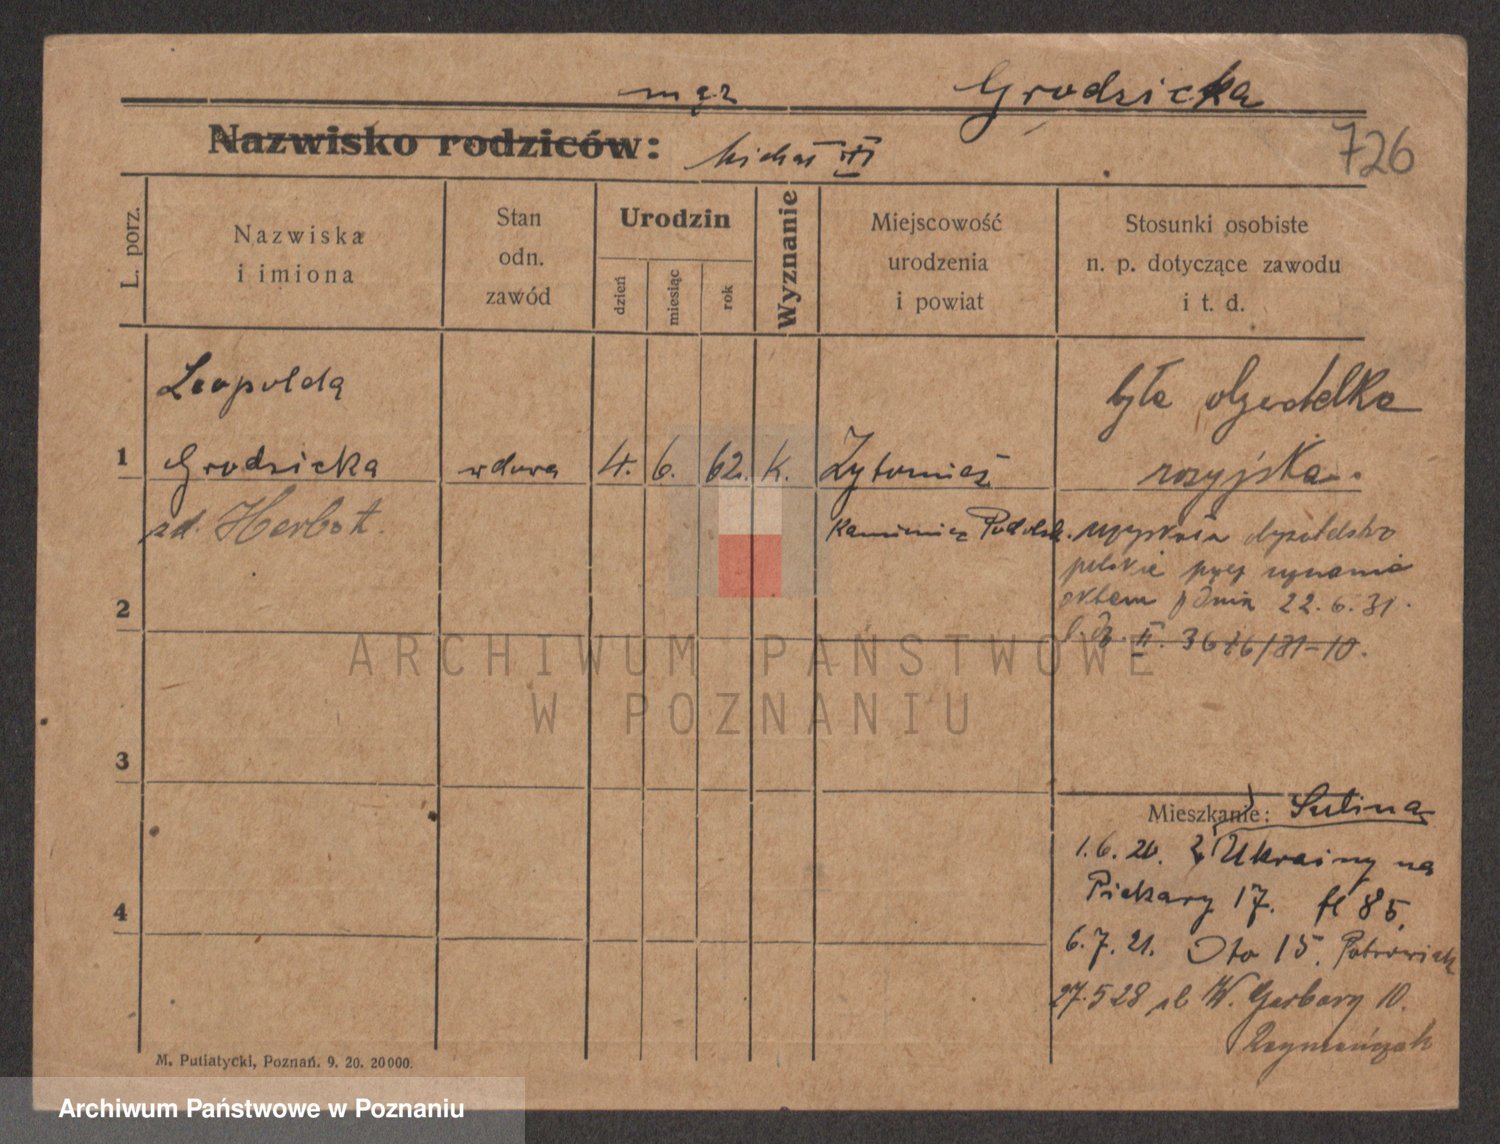 mąż Grodzicka
Nazwisko rodziców: Michał
726
L. porz.
Nazwiska
i imiona
Stan
odn.
zawód
Urodzin
dzień
miesiąc
rok
Wyznanie
Miejscowość
urodzenia
i powiat
Stosunki osobiste
n. p. dotyczące zawodu
i t. d.
Leopolda
była obywatelka
1 Grodzicka wdowa 4. 6. 62. K. Żytomierz rosyjska.
zd. Herbst. Kamieniec Podolsk.
polskie
2 dnia 22.6.31.
II. 3686/31-10.
ARCHIWUM PAŃSTWOWE
W POZNANIU
3
Mieszkanie: Sulina
1.6.20. z Ukrainy na
Piekary 17. fl 85
4
6.7.21. Sto 15.
27.5 28 W. Garbary 10.
M. Putiatycki, Poznań. 9. 20. 20000.
Archiwum Państwowe w Poznaniu